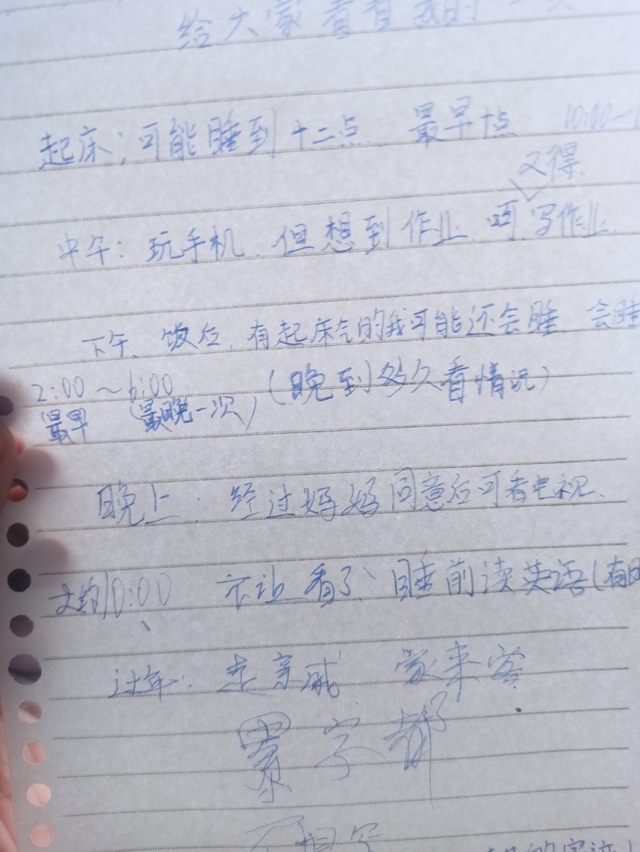 给大家看看我的一天
起床：可能睡到十二点 最早十点 10:00~1
又得
中午：玩手机，但想到作业，呵，写作业
下午、饭后，有起床气的我可能还会睡，会睡
2:00～6:00（晚到多久看情况）
最早 最晚一次，
晚上：经过妈妈同意后可看电视．
大约10:00 不让看了、睡前读英语（有时
过年：走亲戚 家来客
累 字都
不想写
的字迹）